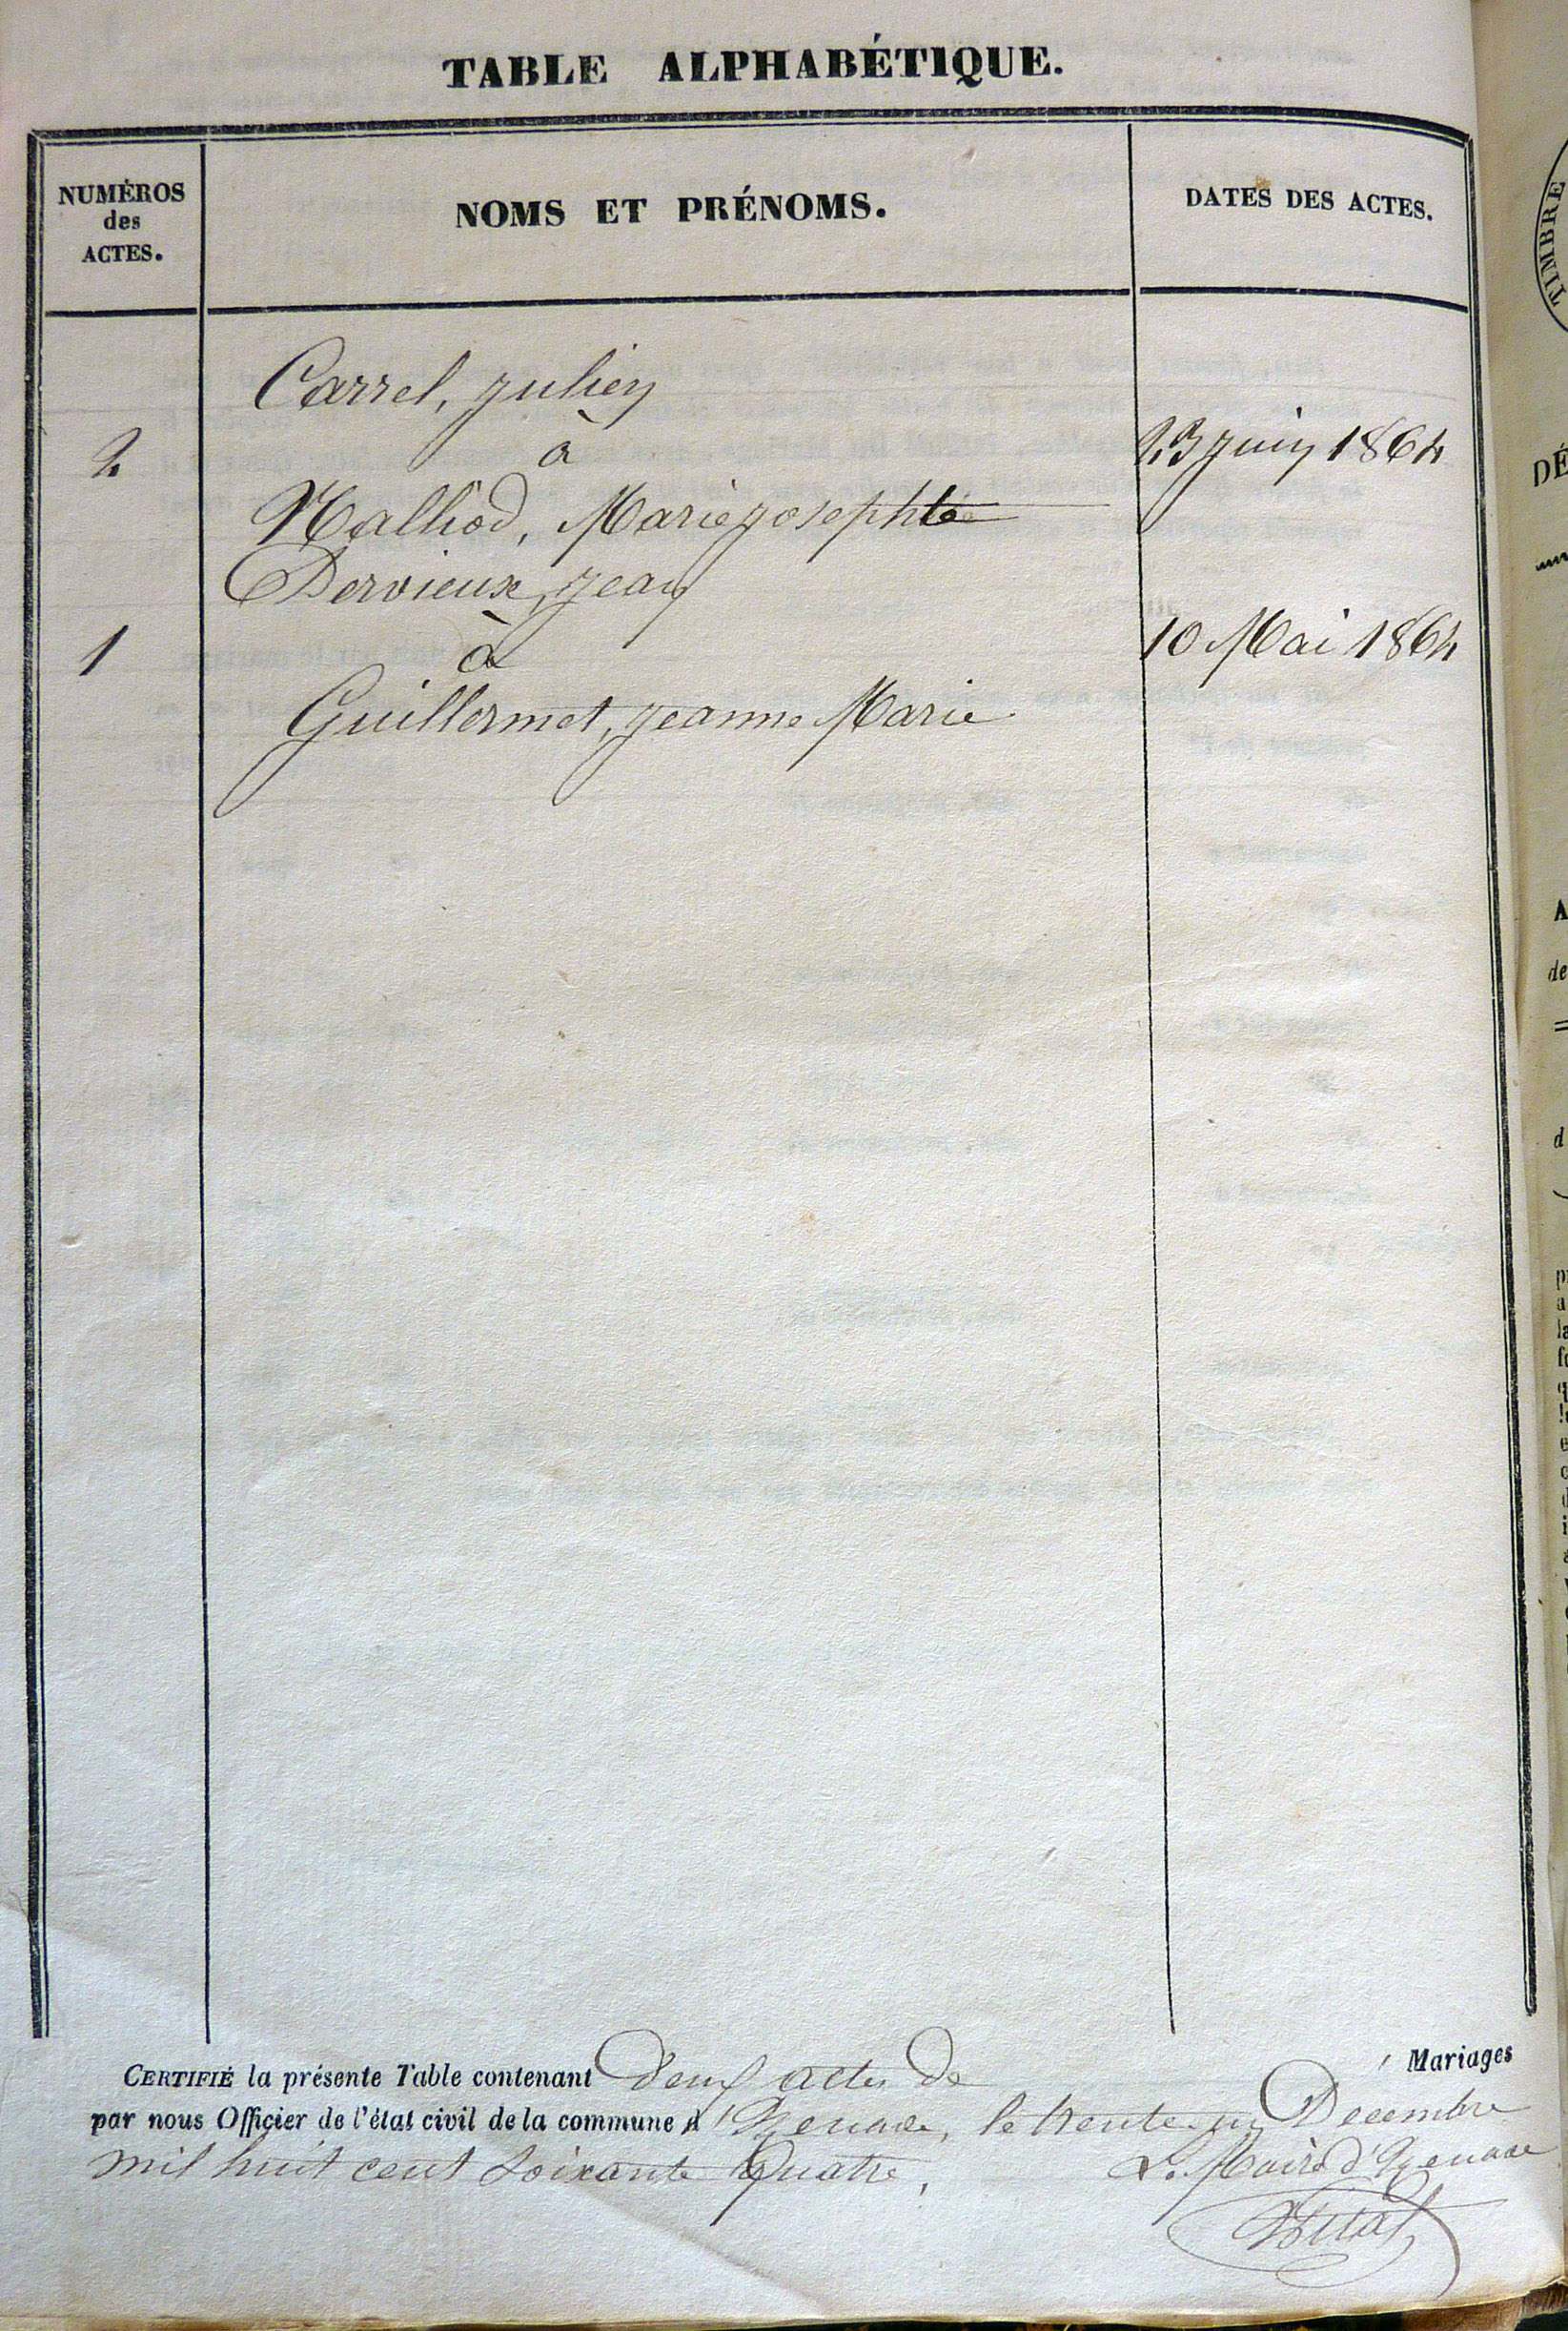 TABLE ALPHABÉTIQUE.
NUMÉROS
des
ACTES.
NOMS ET PRÉNOMS.
DATES DES ACTES.
Carrel, Julien
2
à
23 Juin 1864
Nalliod, Marie Josephte
Dervieux, Jean
1
à
10 Mai 1864
Guillermet, Jeanne Marie
CERTIFIÉ la présente Table contenant Deux actes De Mariages
par nous Officier de l'état civil de la commune d' le trente un Decembre
mil huit cent Soixante Quatre.
Le Maire d'
TIMBRE
DÉ